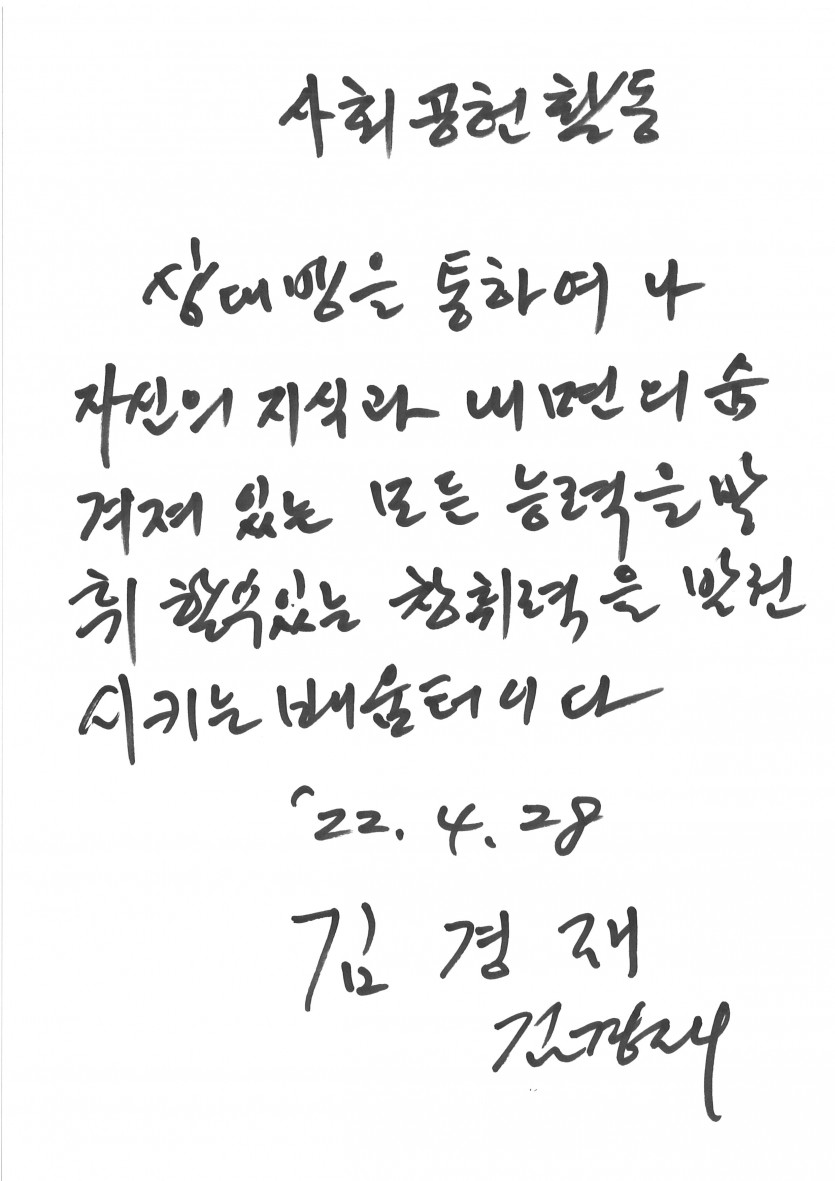 사회공헌활동
상대맹을 통하여 나
자신의 지식과 내면의 숨
겨져 있는 모든 능력을 발
휘 할수있는 창취력을 발전
시키는 배움터이다
'22. 4. 28
김 경 재
김경재